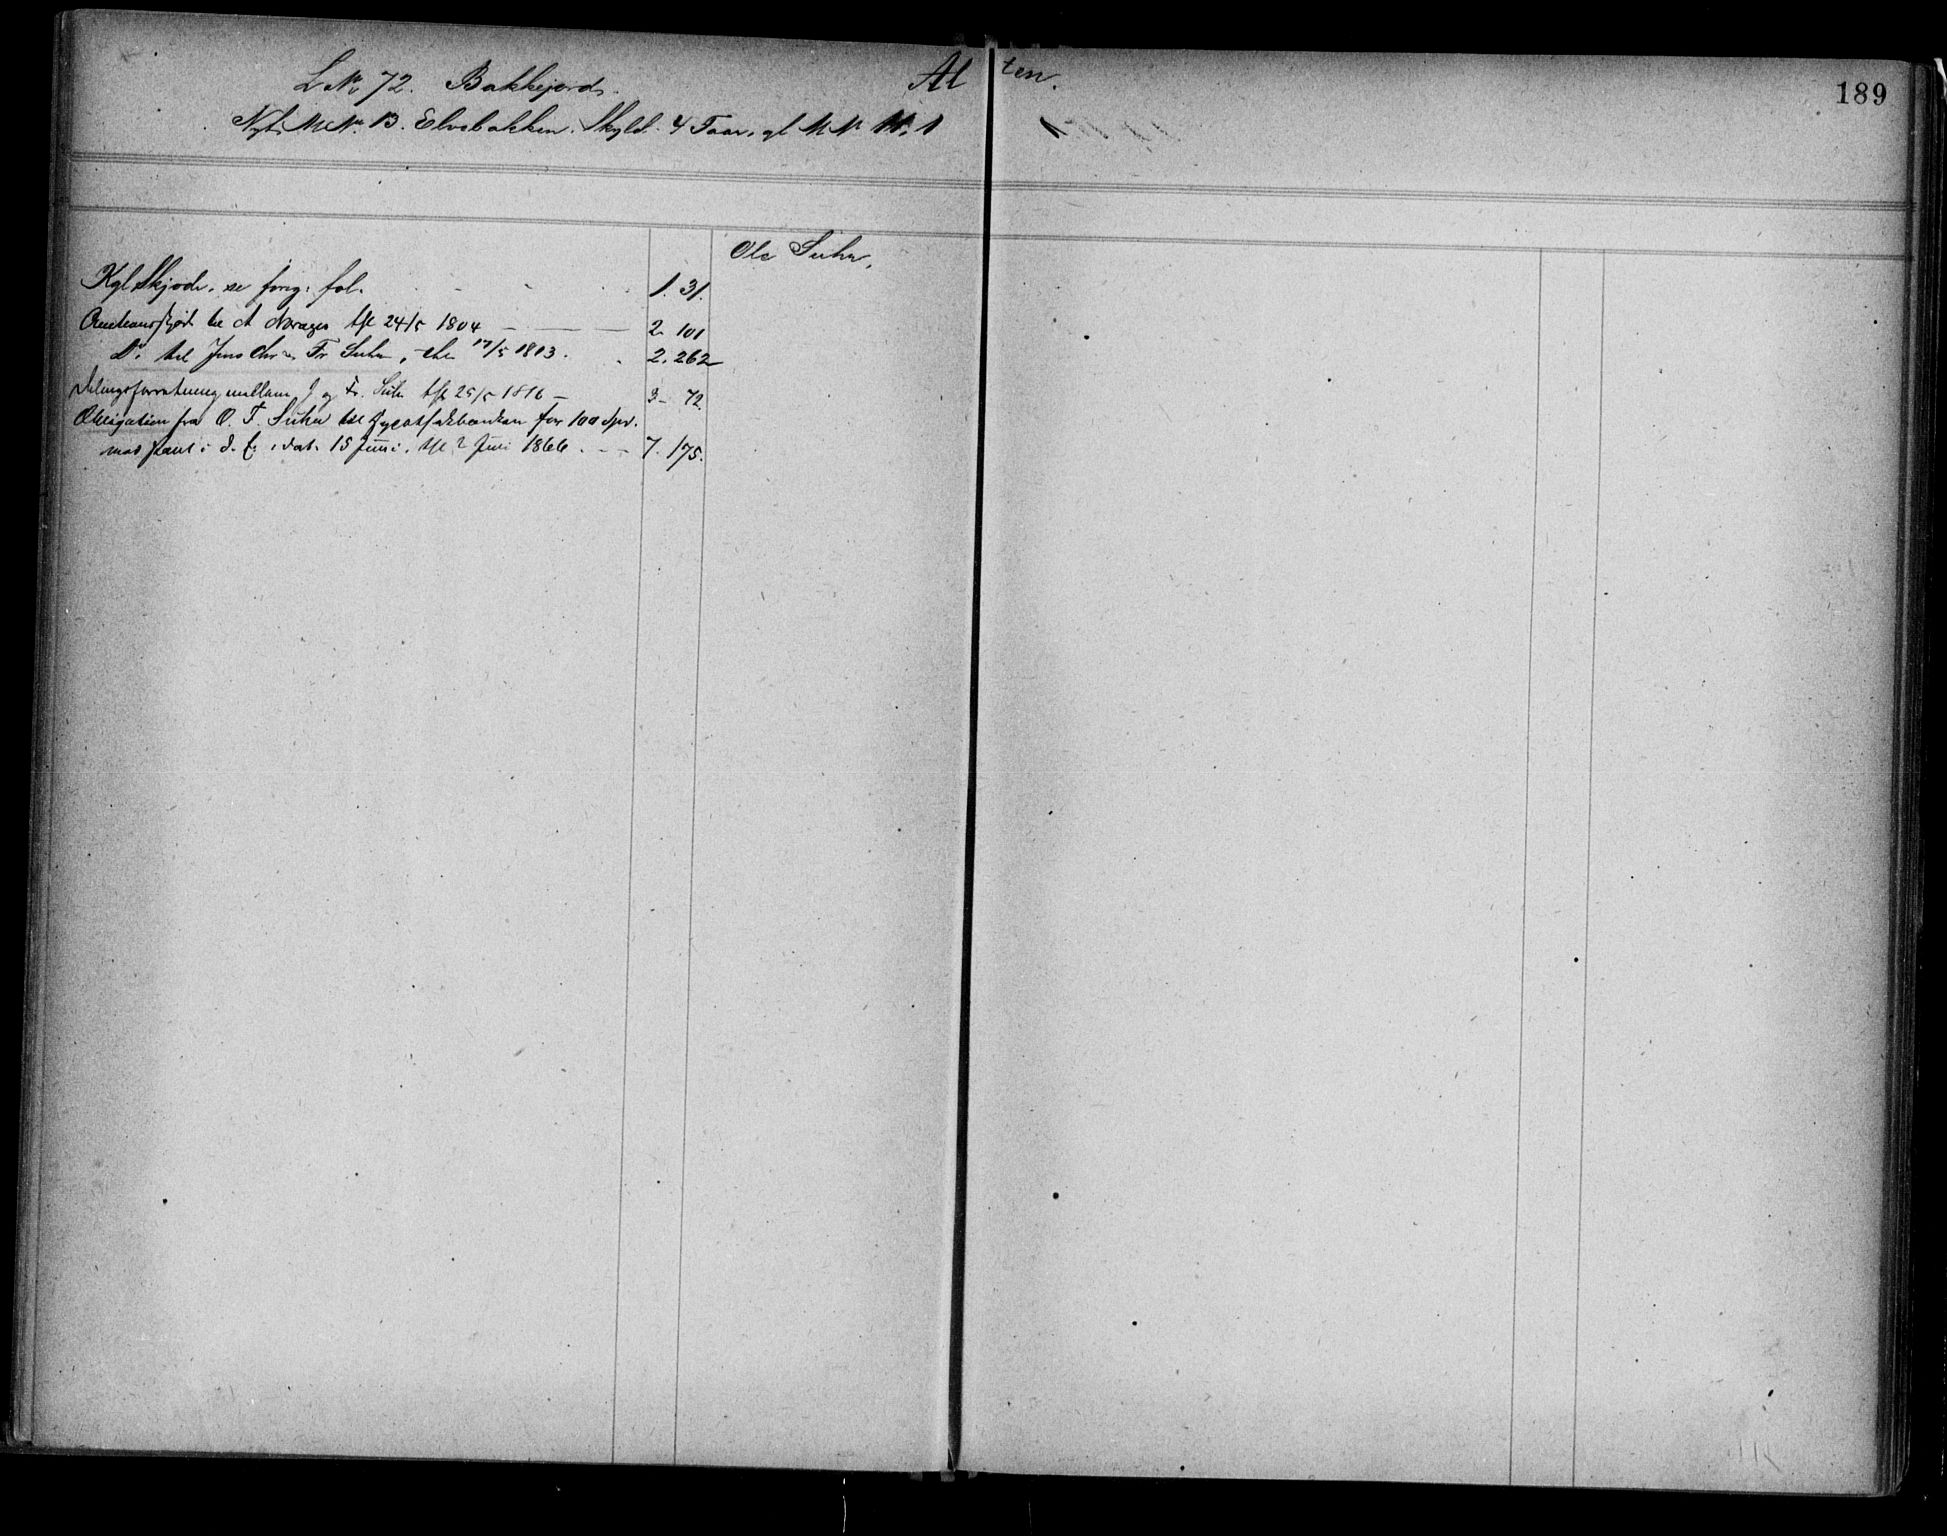 L. No 72. Bakkejord. Al ten.
189
Nyt M No 13. Elvebakken. Skyld. 4 Taar, gl M No 1
Ole Suhr,
Kgl Skjøde, se forrig. fol. 1. 31.
til A Norager tgl 24/5 1804 2. 101
Do til Jens Chr Fr Suhr, 17/5 1813. 2. 262
Delingsforretning mellem J og Fr. Suhr tgl 25/5 1816 3 72.
Obligation fra O. F. Suhr til Hypothekbanken for 100 Spd.
med pant i d. E. dat. 15 Juni. tgl 2 Juni 1866 7. 175.